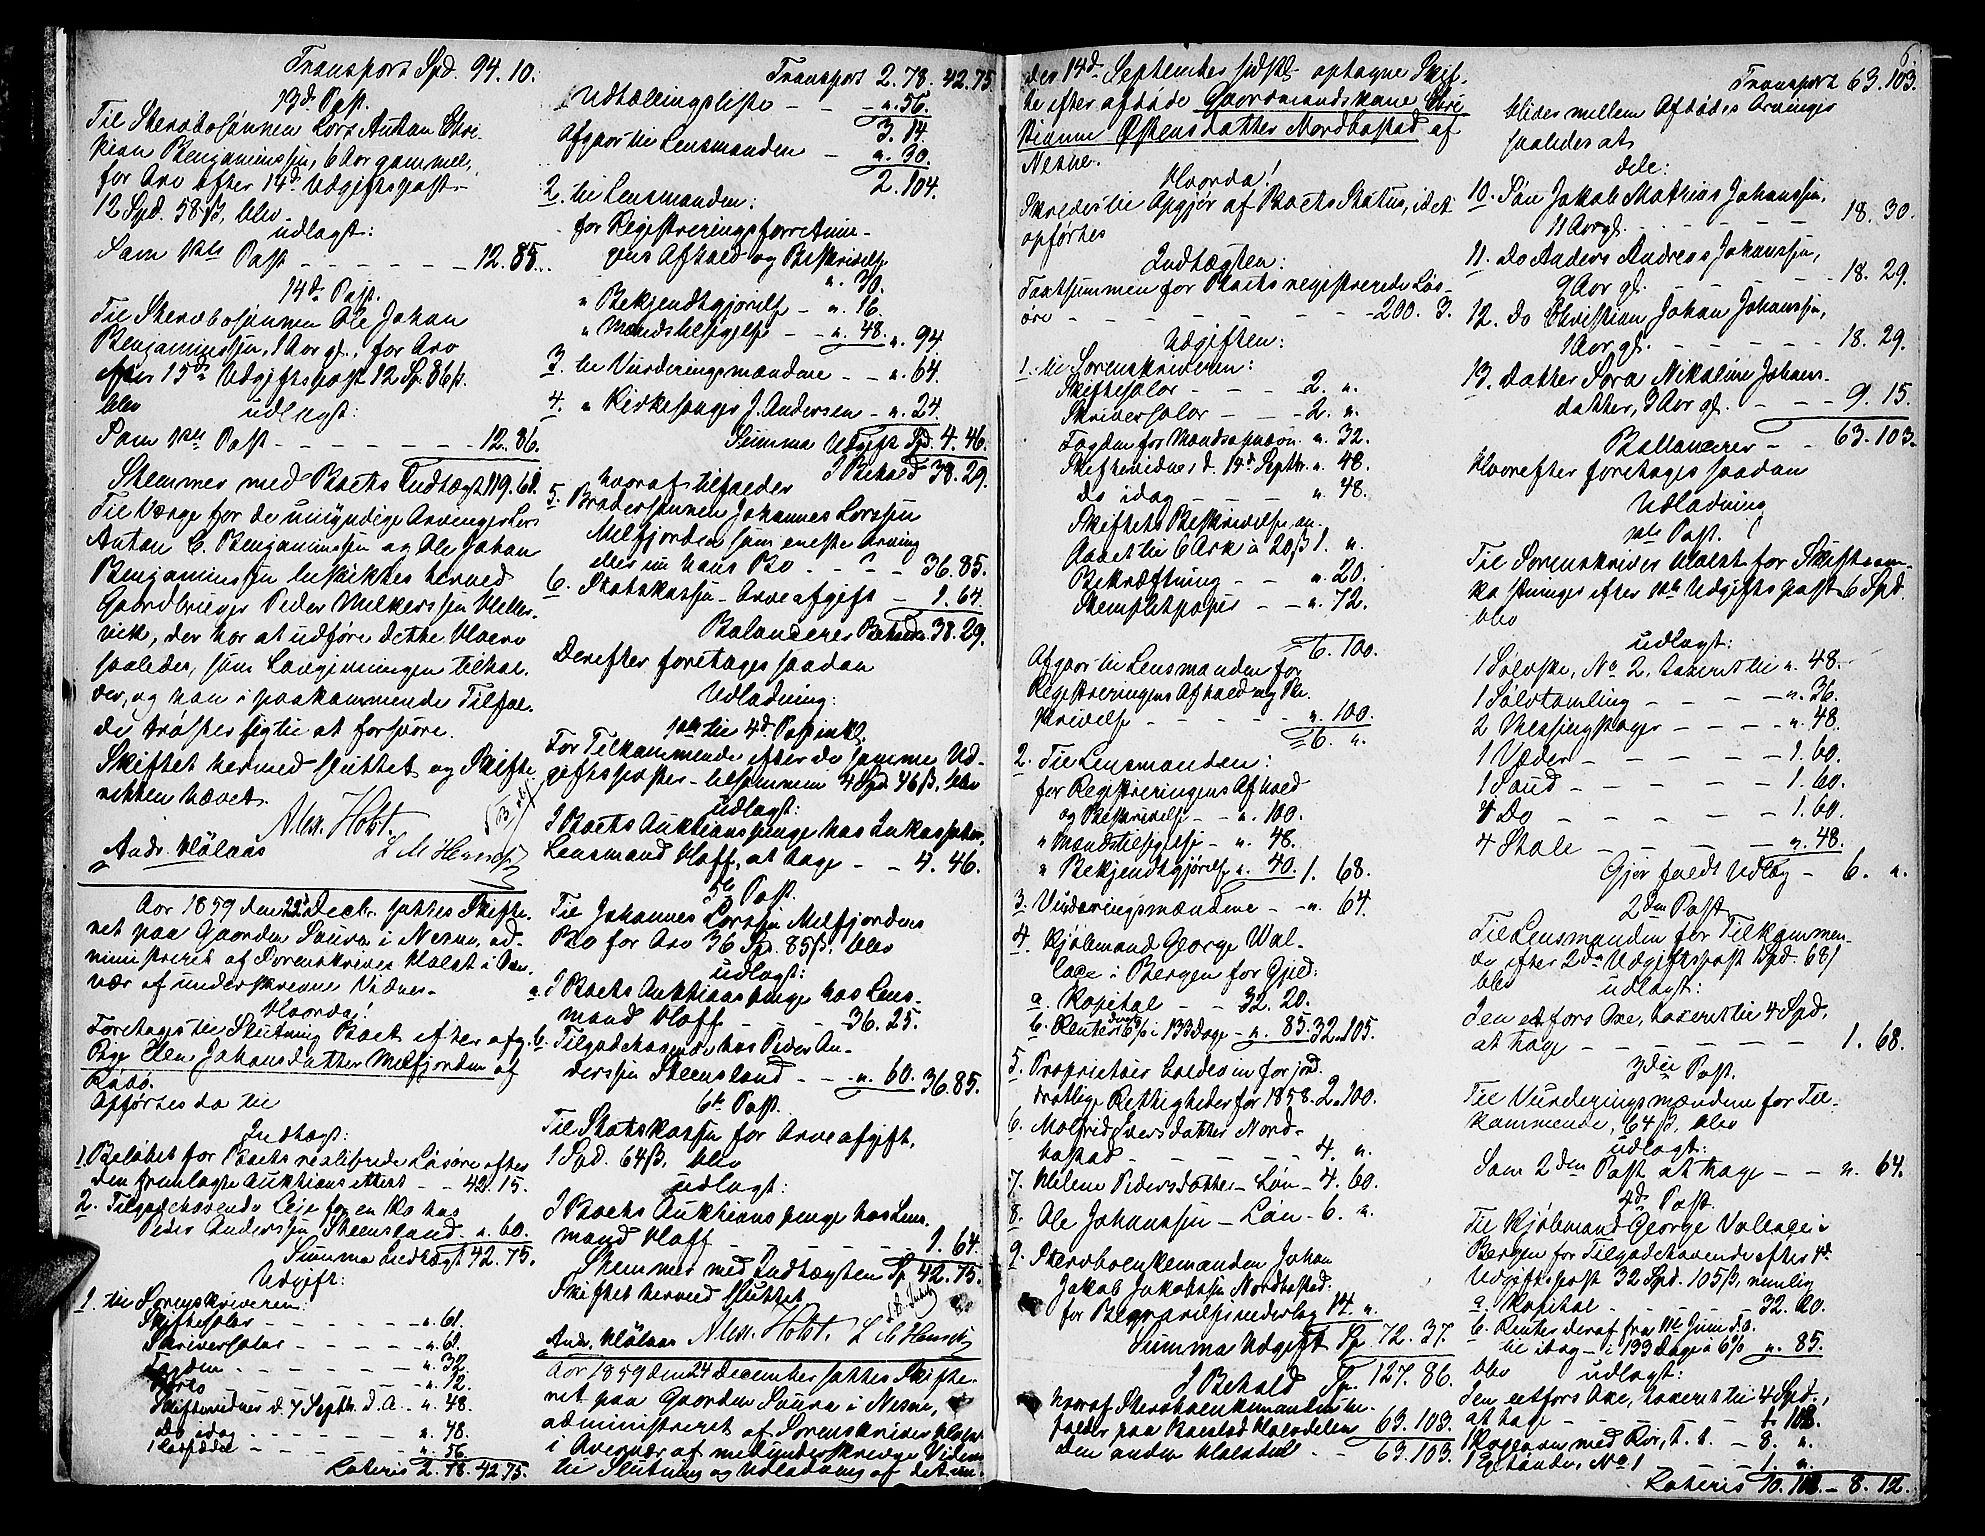 Transport Spd. 94.10.
13de Post.
Til Stervbosønnen Lars Anton Chri-
stian Benjaminssøn, 6 Aar gammel,
for Arv efter 14de Udgiftspost
12 Spd. 58 ß, blev
udlagt:
Som 1ste Post - - - - - - 12.85.
14de Post.
Til Stervbosønnen Ole Johan
Benjaminssøn, 1 Aar gl., for Arv
efter 15de Udgiftspost 12 Sp. 86 ß.
blev udlagt:
Som 1ste Post - - - - - - 12.86.
Stemmer med Boets Indtægt 119.61.
Til Værge for de umyndige Arvinger Lars
Anton C. Benjaminssøn og Ole Johan
Benjaminssøn beskikkes herved
Gaardbruger Peder Melkerssøn
vik, der har at udføre dette Værv
saaledes, som Lovgivningen tilhol-
der, og han i paakommende Tilfæl-
de trøster sig til at forsvare.
Skiftet hermed sluttet og Skifte-
retten hævet.
Alex. Holst.
Andr. Hölaas L M Hansen
Aar 1859 den 22de Decbr. sattes Skifte-
ret paa Gaarden Saura i Nesne, ad-
ministreret af Sorenskriver Holst i Over-
vær af underskrevne Vidner.
Hvorda!
Foretages til Slutning Boet efter afg.
Pige Elen Johansdatter Melfjorden af
Rødø.
Opførtes da til
Indtægt:
1. Beløbet for Boets realiserede Løsøre efter
den fremlagte Auktionsattest - - 42.15.
2. Tilgodehavende Leje for en Ko hos
Peder Anderssøn Steensland - ". 60.
Summa Indtægt 42.75.
Udgift:
1. til Sorenskriveren:
Skiftesalær - - - - - ". 61.
Skriversalær - - - - ". 61.
Fogden - - - - - ". 32.
- - - - - ". 12.
Skiftevidner d. 7 Septbr. d. A. - ". 48.
Do idag - - - - - ". 48.
- - - - ". 56.
Lateris 2.78. 42.75.
Transport 2.78. 42.75
Udtællingsliste - - - ". 56.
3. 14.
Afgaar til Lensmanden - ". 30.
2. 104.
2. til Lensmanden:
for Registreringsforretnin-
gens Afhold og Beskrivelse
". 30.
" Bekjendtgjørelse - ". 16.
" Mandstilsigelse - ". 48. ". 94
3. til Vurderingsmændene - - ". 64.
4. " Kirkesanger J. Andersen - ". 24.
Summa Udgift Spd. 4.46.
I Behold 38.29.
hvoraf tilfalder
5. Brodersønnen Johannes Larssøn
Melfjorden som eneste Arving
eller nu hans Bo - - - 36.85.
6. Statskassen - Arveafgift - 1.64.
Balancerer Beholdn. 38.29.
Derefter foretages saadan
Udlodning:
1ste til 4de Post inkl.
For Tilkommende efter de samme Ud-
giftsposter - tilsammen 4 Spd. 46 ß. blev
udlagt:
I Boets Auktionspenge hos Inkassator,
Lensmand Hoff, at tage - - 4. 46.
5te Post.
Til Johannes Larssøn Melfjordens
Bo for Arv 36 Sp. 85 ß. blev
udlagt:
a. I Boets Auktionspenge hos Lens-
mand Hoff - - - 36. 25.
b. Tilgodehavende hos Peder An-
derssøn Steensland - - ". 60. 36.85.
6te Post.
Til Statskassen for Arveafgift,
1 Spd. 64 ß. blev
udlagt:
I Boets Auktionspenge hos Lens-
mand Hoff - - - - - 1. 64.
Stemmer med Indtægten Sp. 42.75.
Skiftet hermed sluttet.
Andr. Hölaas Alex. Holst. L M Hansen
Aar 1859 den 24 December sattes Skifte-
ret paa Gaarden Saura i Nesne,
administreret af Sorenskriver Holst
i Overvær af medunderskrevne Vidner
til Slutning og Udlodning af det un-
der 14de September sidstl. optagne Skif-
te efter afdøde Gaardmandskone Chri-
stianne Østensdatter Nordbostad af
Nesne.
Hvorda!
Skredes til Opgjør af Boets Status, idet
opførtes
Indtægten:
Taxtsummen for Boets registrerede Løs-
øre - - - - - - - 200. 3.
Udgiften:
1. til Sorenskriveren:
Skiftesalær - - - 2. ".
Skriversalær - - - 2. ".
Fogden for Mandsopnævn. ". 32.
Skiftevidner d. 14de Septbr. ". 48.
Do idag - - - - ". 48.
Skiftets Beskrivelse an-
taget til 6 Ark à 20 ß 1. ".
Bekræftning - - ". 20.
Stemplet papir - - ". 72.
6. 100.
Afgaar til Lensmanden for
Registreringens Afhold og Be-
skrivelse - - - - - ". 100.
6. ".
2. Til Lensmanden:
for Registreringens Afhold
og Beskrivelse - - ". 100.
" Mandstilsigelse - ". 48.
" Bekjendtgjørelse ". 40. 1. 68.
3. Vurderingsmændene - - ". 64.
4. Kjøbmand George Wal-
lace i Bergen for Gjæld:
a. Kapital - - 32. 20.
b. Renter deraf 6% i 133 Dage - ". 85. 32.105.
5. Proprietair Coldevin for jord-
drotlige Rettigheder for 1858. 2.100.
6. Molfrid Iversdatter Nord-
bostad - - - - - 4. ".
7. Helene Pedersdatter - Løn - 4. 60.
8. Ole Johanssøn - Løn - 6. ".
9. Stervboenkemanden Johan
Jakob Jakobssøn Nordbostad:
for Begravelsesvederlag 14. ".
Summa Udgift Sp. 72. 37.
I Behold Sp. 127. 86.
hvoraf Stervboenkemanden til-
falder paa Boeslod Halvdelen 63. 103.
Den anden Halvdel - - 63. 103.
6.
Transport 63.103.
blider mellem Afdødes Arvinger
saaledes at
dele:
10. Søn Jakob Mathias Johanssøn,
11 Aar gl. - - - - - 18. 30.
11. Do Anders Andreas Johanssøn,
9 Aar gl. - - - - - 18. 29.
12. Do Christian Johan Johanssøn,
1 Aar gl. - - - - - 18. 29.
13. Datter Sara Nikoline Johans-
datter, 3 Aar gl. - - - 9. 15.
Ballancerer - - 63.103.
Hvorefter foretages saadan
Udlodning
1ste Post.
Til Sorenskriver Holst for Skifteom-
kostninger efter 1ste Udgiftspost 6 Spd.
blev
udlagt:
1 Sølvske, No 2, taxeret til ". 48.
1 Sølvtomling - - - - ". 36.
2 Messingstager - - - - ". 48.
1 Væder - - - - - 1. 60.
1 Saud - - - - - - 1. 60.
1 Do - - - - - - 1. 60.
4 Stole - - - - - ". 48.
Gjør fuldt Udlæg - 6. ".
2den Post
Til Lensmanden for Tilkommen-
de efter 2den Udgiftspost 1 Spd. 68 ß
blev udlagt:
I en etfors Oxe, taxeret til 4 Spd.,
at tage - - - - - - 1. 68.
3die Post.
Til Vurderingsmændene for Til-
kommende, 64 ß, blev
udlagt:
Som 2den Post at tage - - ". 64.
4de Post.
Til Kjøbmand George Vallace i
Bergen for Tilgodehavende efter 4de
Udgiftspost 32 Spd. 105 ß, nemlig
a. Kapital - - - - 32. 20.
b. Renter deraf fra 11te Juni d. A.
til idag - i 133 Dage à 6% ". 85.
blev udlagt:
I en etfors Oxe, taxeret til 4 Spd.,
at tage - - - - - 1. 108.
1 Kobberovn med Rør, t. t. - 8. ".
1 , No 1 - - - 1. ".
Lateris 10. 108. - 8. 12.